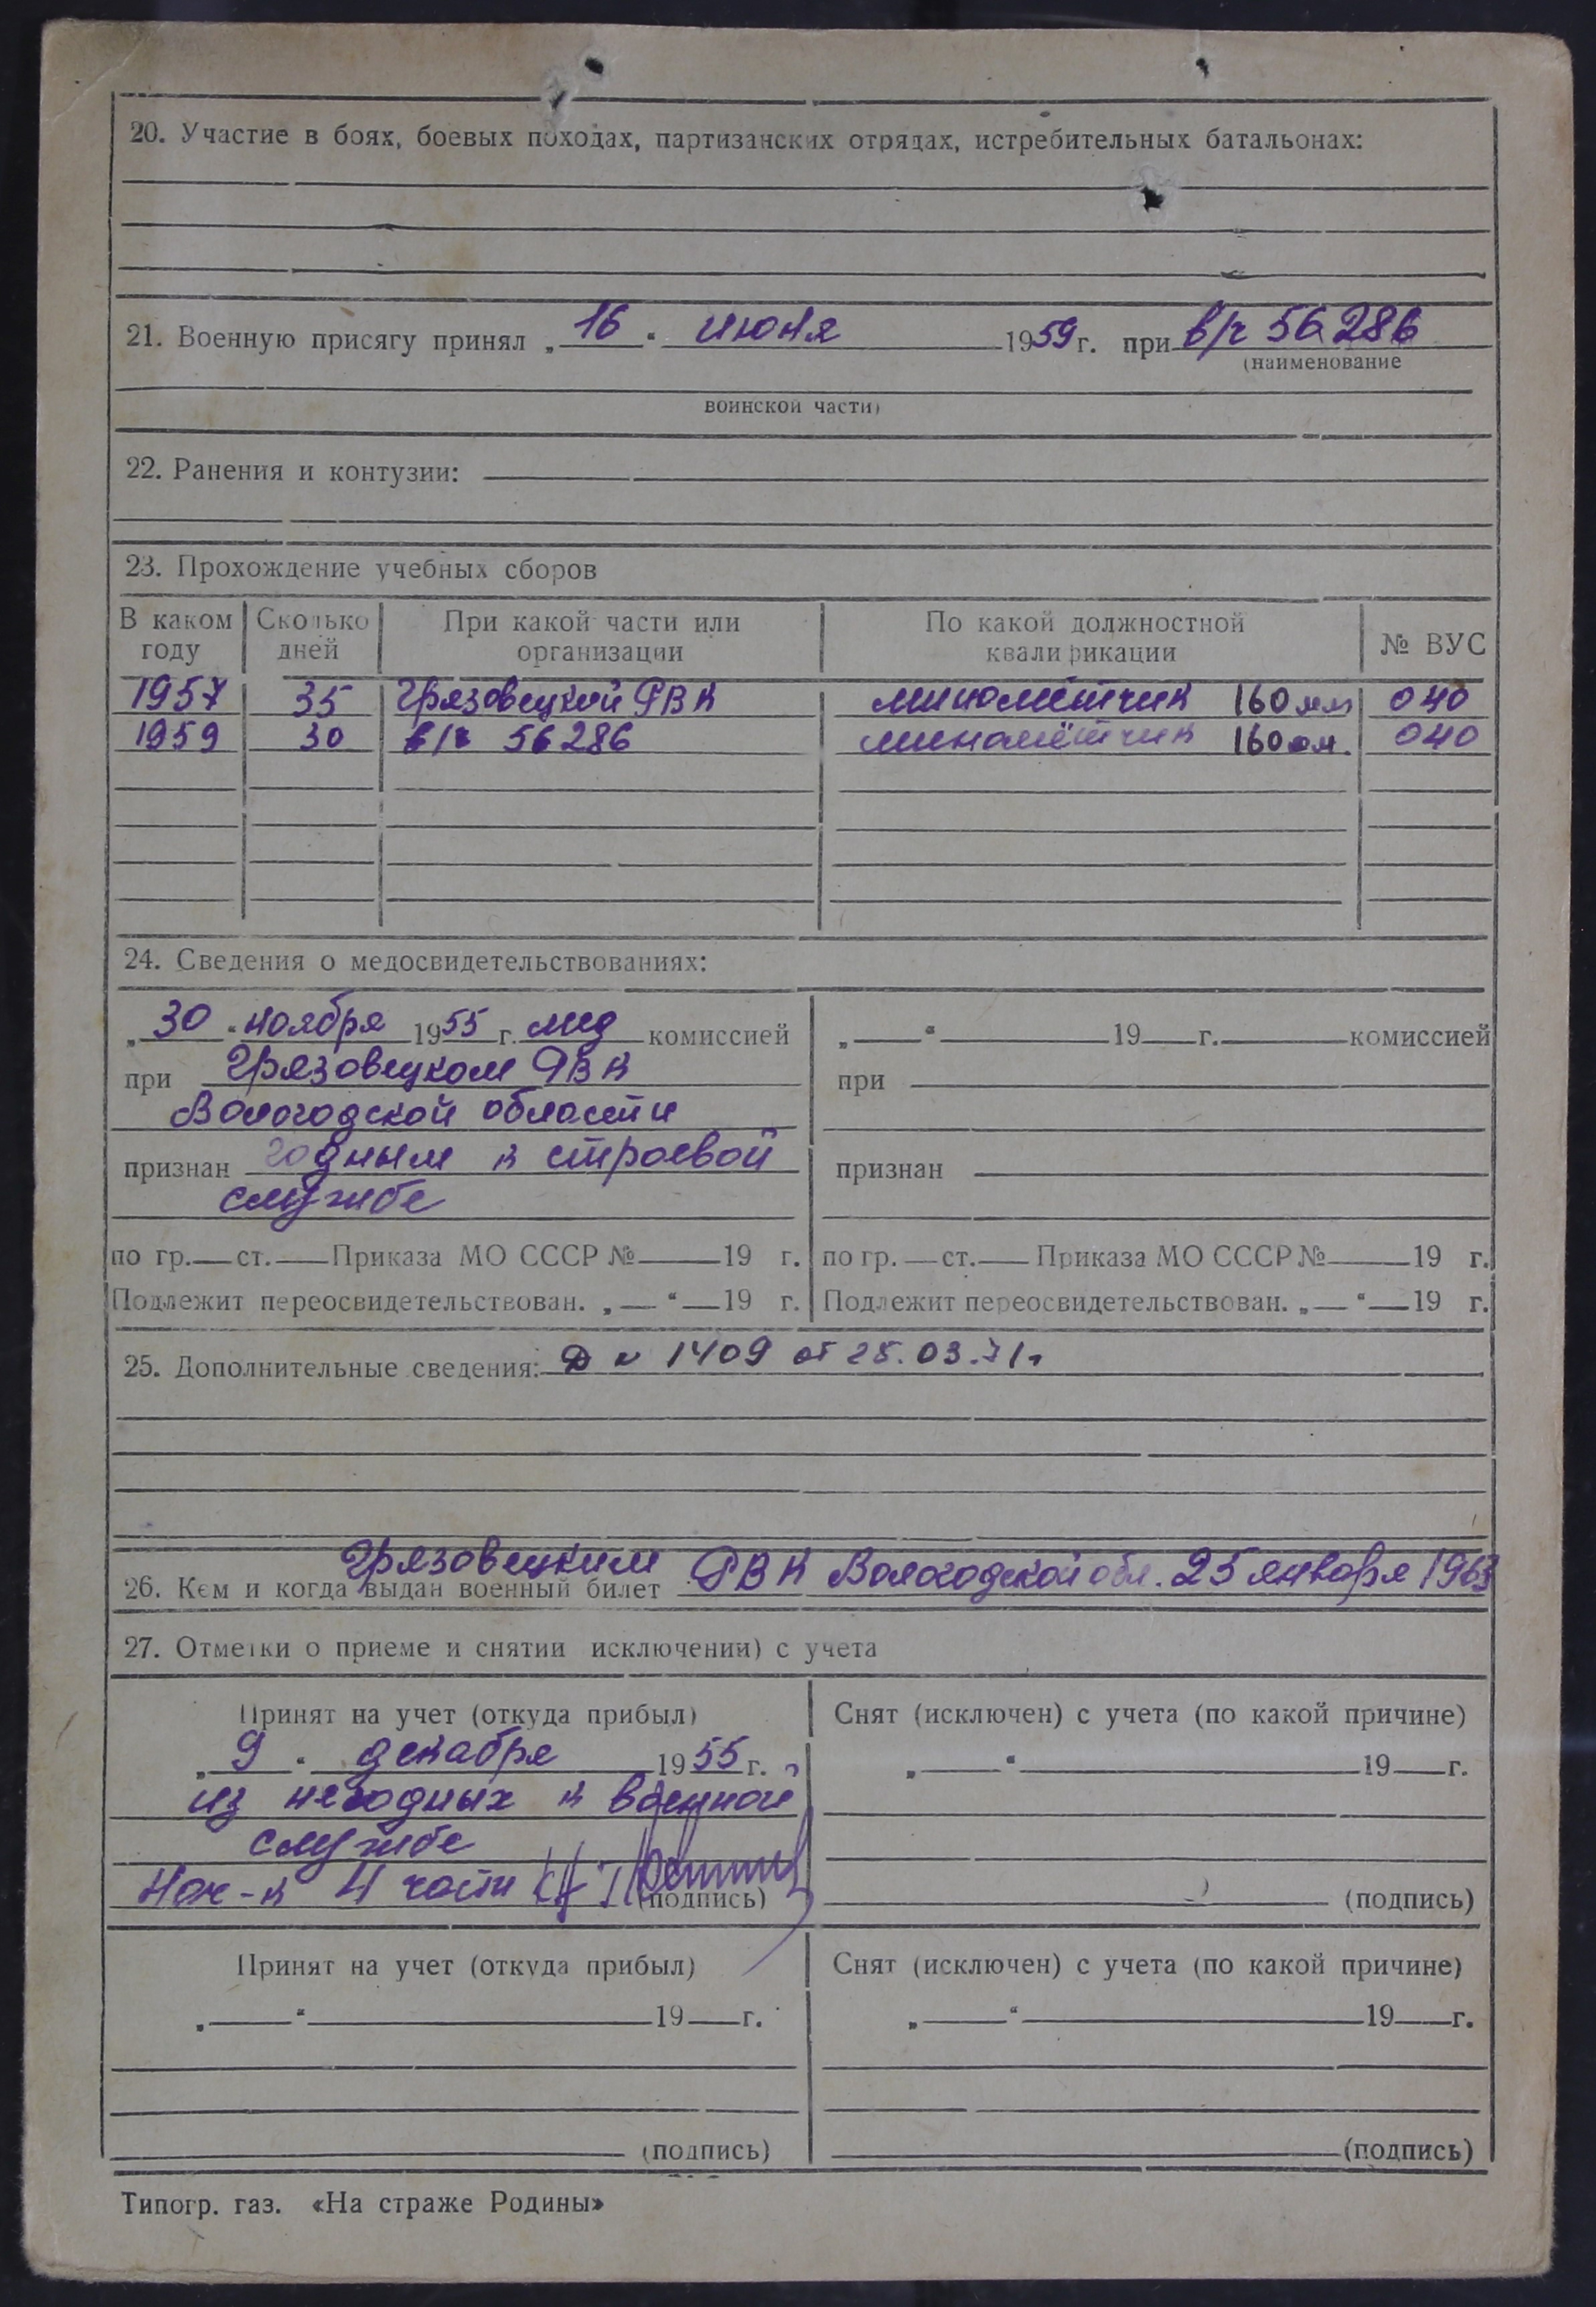 20. Участие в боях, боевых походах, партизанских отрядах, истребительных батальонах:
21. Военную присягу принял „16“ июня 1959 г. при в/ч 56286
(наименование
воинской части)
22. Ранения и контузии:
23. Прохождение учебных сборов
В каком году | Сколько дней | При какой части или организации | По какой должностной квалификации | № ВУС
1957 | 35 | Грязовецкой РВК | миномётчик 160 мм | 040
1959 | 30 | в/ч 56286 | миномётчик 160 мм. | 040
24. Сведения о медосвидетельствованиях:
„30“ ноября 1955 г. мед комиссией
при Грязовецком РВК
Вологодской области
признан годным к строевой
службе
по гр. ст. Приказа МО СССР № 19 г.
Подлежит переосвидетельствован. „ “ 19 г.
„ “ 19 г. комиссией
при
признан
по гр. ст. Приказа МО СССР № 19 г.
Подлежит переосвидетельствован. „ “ 19 г.
25. Дополнительные сведения: Д № 1409 от 25.03.71г
26. Кем и когда выдан военный билет Грязовецким РВК Вологодской обл. 25 января 1963
27. Отметки о приеме и снятии исключении) с учета
Принят на учет (откуда прибыл)
„9“ декабря 1955 г.
из негодных к военной
службе
Нач-к 4 части
(подпись)
Снят (исключен) с учета (по какой причине)
„ “ 19 г.
(подпись)
Принят на учет (откуда прибыл)
„ “ 19 г.
(подпись)
Снят (исключен) с учета (по какой причине)
„ “ 19 г.
(подпись)
Типогр. газ. «На страже Родины»